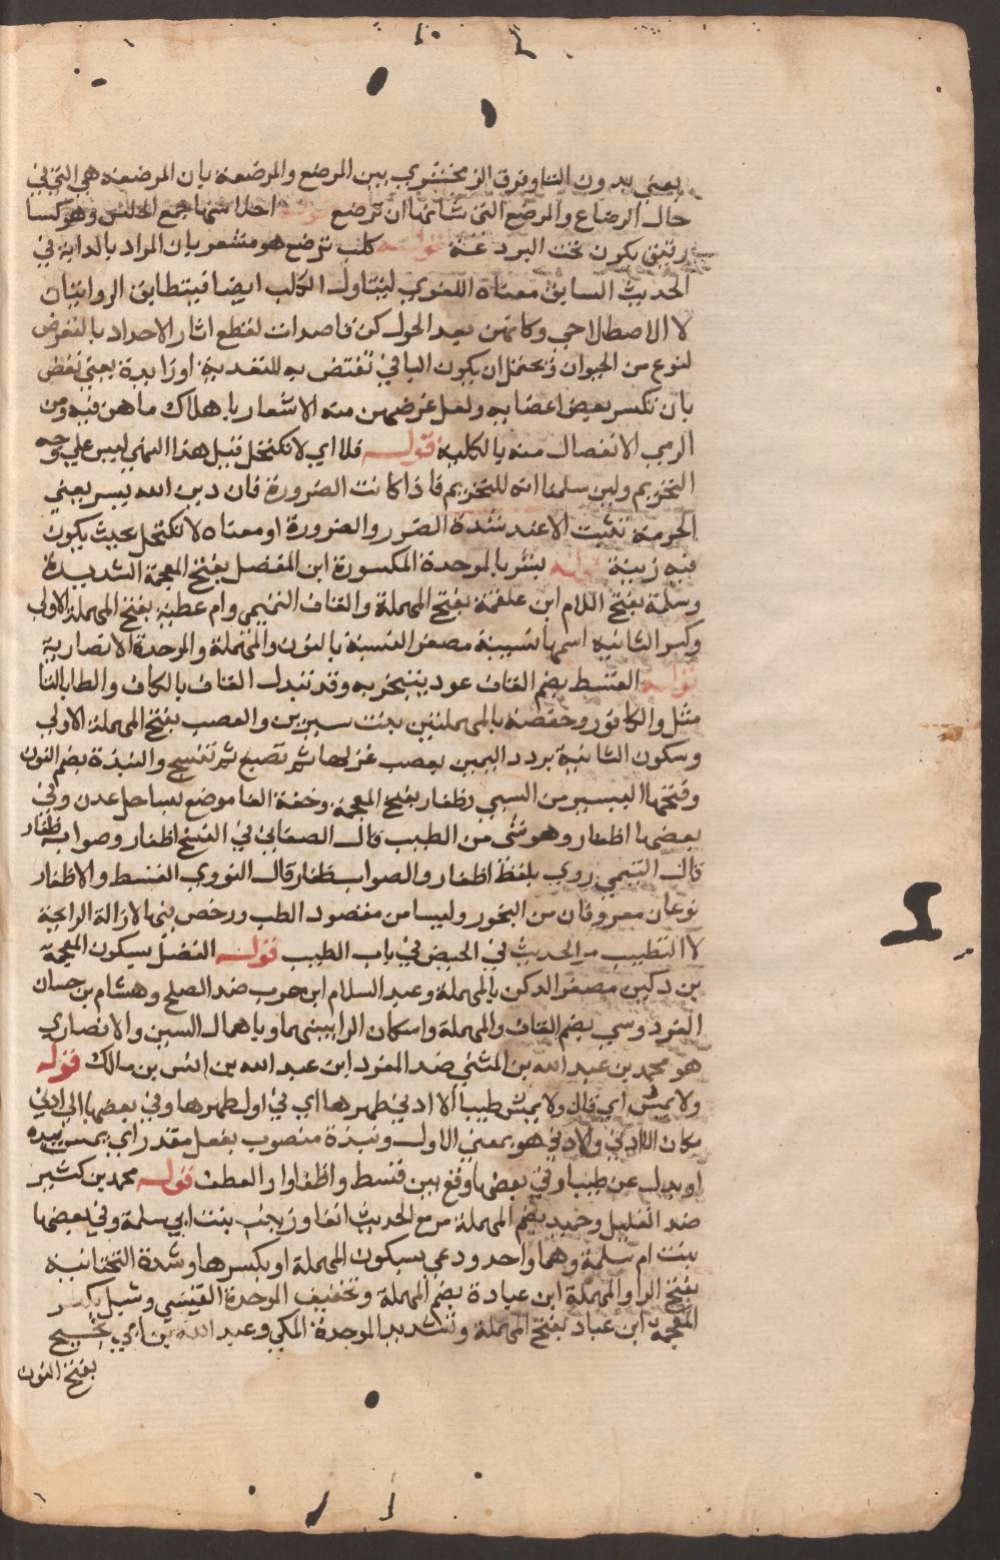 يعني بدون التا وفرق الزمخشري بين المرضع والمرضعة بان المرضعة هي التي في
حال الرضاع والمرضع التي شانها ان ترضع قوله احلاسها جمع الحلس وهو كسا
رقيق يكون تحت البردعة قوله كلب ترضع هو مشعر بان المراد بالدابة في
الحديث السابق معناه اللغوي ليتناول الكلب ايضا فيتطابق الروايتان
لا الاصطلاحي وكانهن بعد الحول كن قاصدات لقطع اثار الاحداد بالتعرض
لنوع من الحيوان ويحتمل ان يكون البا في تفتض به للتعدية او زايدة يعني تفتض
بان تكسر بعض اعضايه ولعل غرضهن منه الاشعار باهلاك ما هن فيه ومن
الرمي الانفصال منه بالكلية قوله فلا اي لا تكتحل قيل هذا النهي ليس علي وجه
التحريم ولين سلمنا انه للتحريم فاذا كانت الضرورة فان دين الله يسر يعني
الحرمة تثبت الا عند شدة الضرر والضرورة او معناه لا تكتحل بحيث يكون
فيه زينة قوله بشر بالموحدة المكسورة ابن المفضل بفتح المعجمة الشديدة
وسلمة بفتح اللام ابن علقمة بفتح المهملة والقاف التميمي وام عطية بفتح المهملة الاولي
وكسر الثانية اسمها نسيبة مصغر النسبة بالنون والمهملة والموحدة الانصارية
قوله القسط بضم القاف عود يتبخر به وقد تبدل القاف بالكاف والطا بالتا
مثل والكافور وحفصة بالمهملتين بنت سيرين والعصب بفتح المهملة الاولي
وسكون الثانية برد اليمن يعصب غزلها ثم تصبغ ثم تنسج والنبذة بضم النون
وفتحها اليسير من السي وظفار بفتح المعجمة وخفة الفا موضع بساحل عدن وفي
بعضها اظفار وهو شي من الطيب قال الصغاني في النسخ اظفار وصوابه ظفار
قال التيمي روي بلفظ اظفار والصواب ظفار قال النووي القسط والاظفار
نوعان معروفان من البخور وليسا من مقصود الطيب ورخص فيها لازالة الرايحة
لا التطييب مر الحديث في الحيض في باب الطيب قوله الفضل بسكون المعجمة
بن دكين مصغر الدكن بالمهملة وعبد السلام ابن حرب ضد الصلح وهشام بن حسان
القردوسي بضم القاف والمهملة واسكان الرا بينهما وباهمال السين والانصاري
هو محمد بن عبد الله بن المثني ضد المفرد ابن عبد الله بن انس بن مالك قوله
ولا يمس اي قال ولا يمس طيبا الا ادني طهرها اي في اول طهرها وفي بعضها الي ادني
مكان الا ادني والادني هو بمعني الاول ونبذة منصوب بفعل مقدر اي يمس نبذه
او بدل عن طيبا وفي بعضها وقع بين قسط واظفار او العطف قوله محمد بن كثير
ضد القليل وحميد بضم المهملة مر مع الحديث انفا وزينب بنت ابي سلمة وفي بعضها
بنت ام سلمة وهما واحد ودعي بسكون المهملة او بكسرها وشدة التحتانية
بفتح الرا والمهملة ابن عبادة بضم المهملة وتخفيف الموحدة القيسي وشبل بكسر
المعجمة ابن عباد بفتح المهملة وتشديد الموحدة المكي وعبد الله بن ابي نجيح
بفتح النون